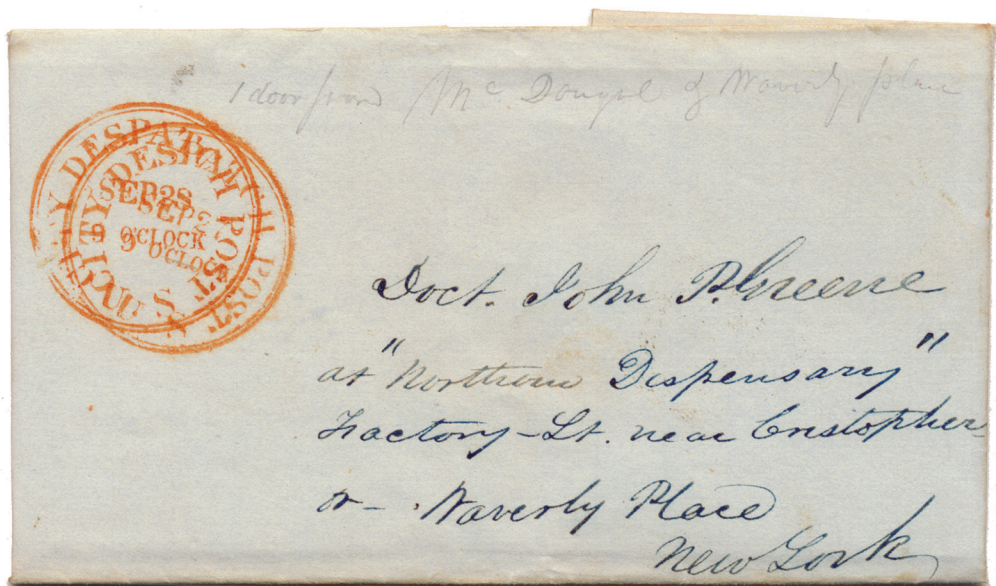 1 door from Mc Dougal & Waverly place
U.S. CITY DESPATCH POST
SEP 28
9 O'CLOCK
U.S. CITY DESPATCH POST
SEP 2
O'CLOCK
Doct. John P. Greene
at "Northern Dispensary"
Factory-St. near Cristopher
or - Waverly Place
New York